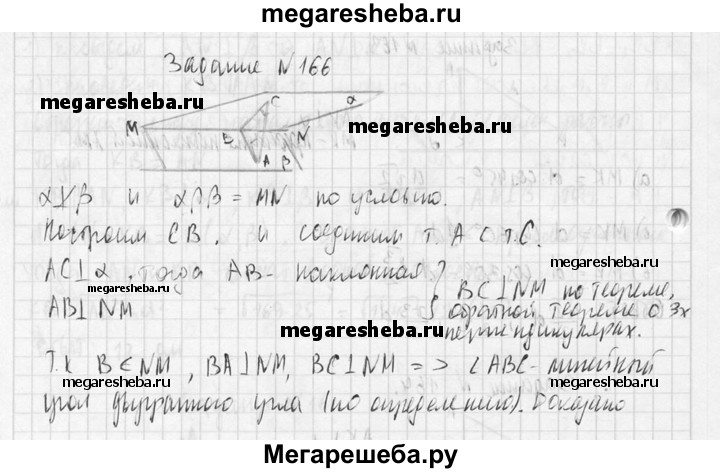 megaresheba.ru
Задание N166
C
α
megaresheba.ru
megaresheba.ru
M
B
N
A
β
α∦β и α∩β = MN по условию.
Построим CB, и соединим т. A с т.C.
AC⊥α, тогда AB- наклонная
megaresheba.ru
megaresheba.ru
AB⊥NM
BC⊥NM по теореме,
обратной теореме о 3х
перпендикулярах.
megaresheba.ru
Т.к B∈NM, BA⊥NM, BC⊥NM => ∠ABC- линейный
megaresheba.ru
megaresheba.ru
угол двугранного угла (по определению). Доказано
Мегарешеба.ру